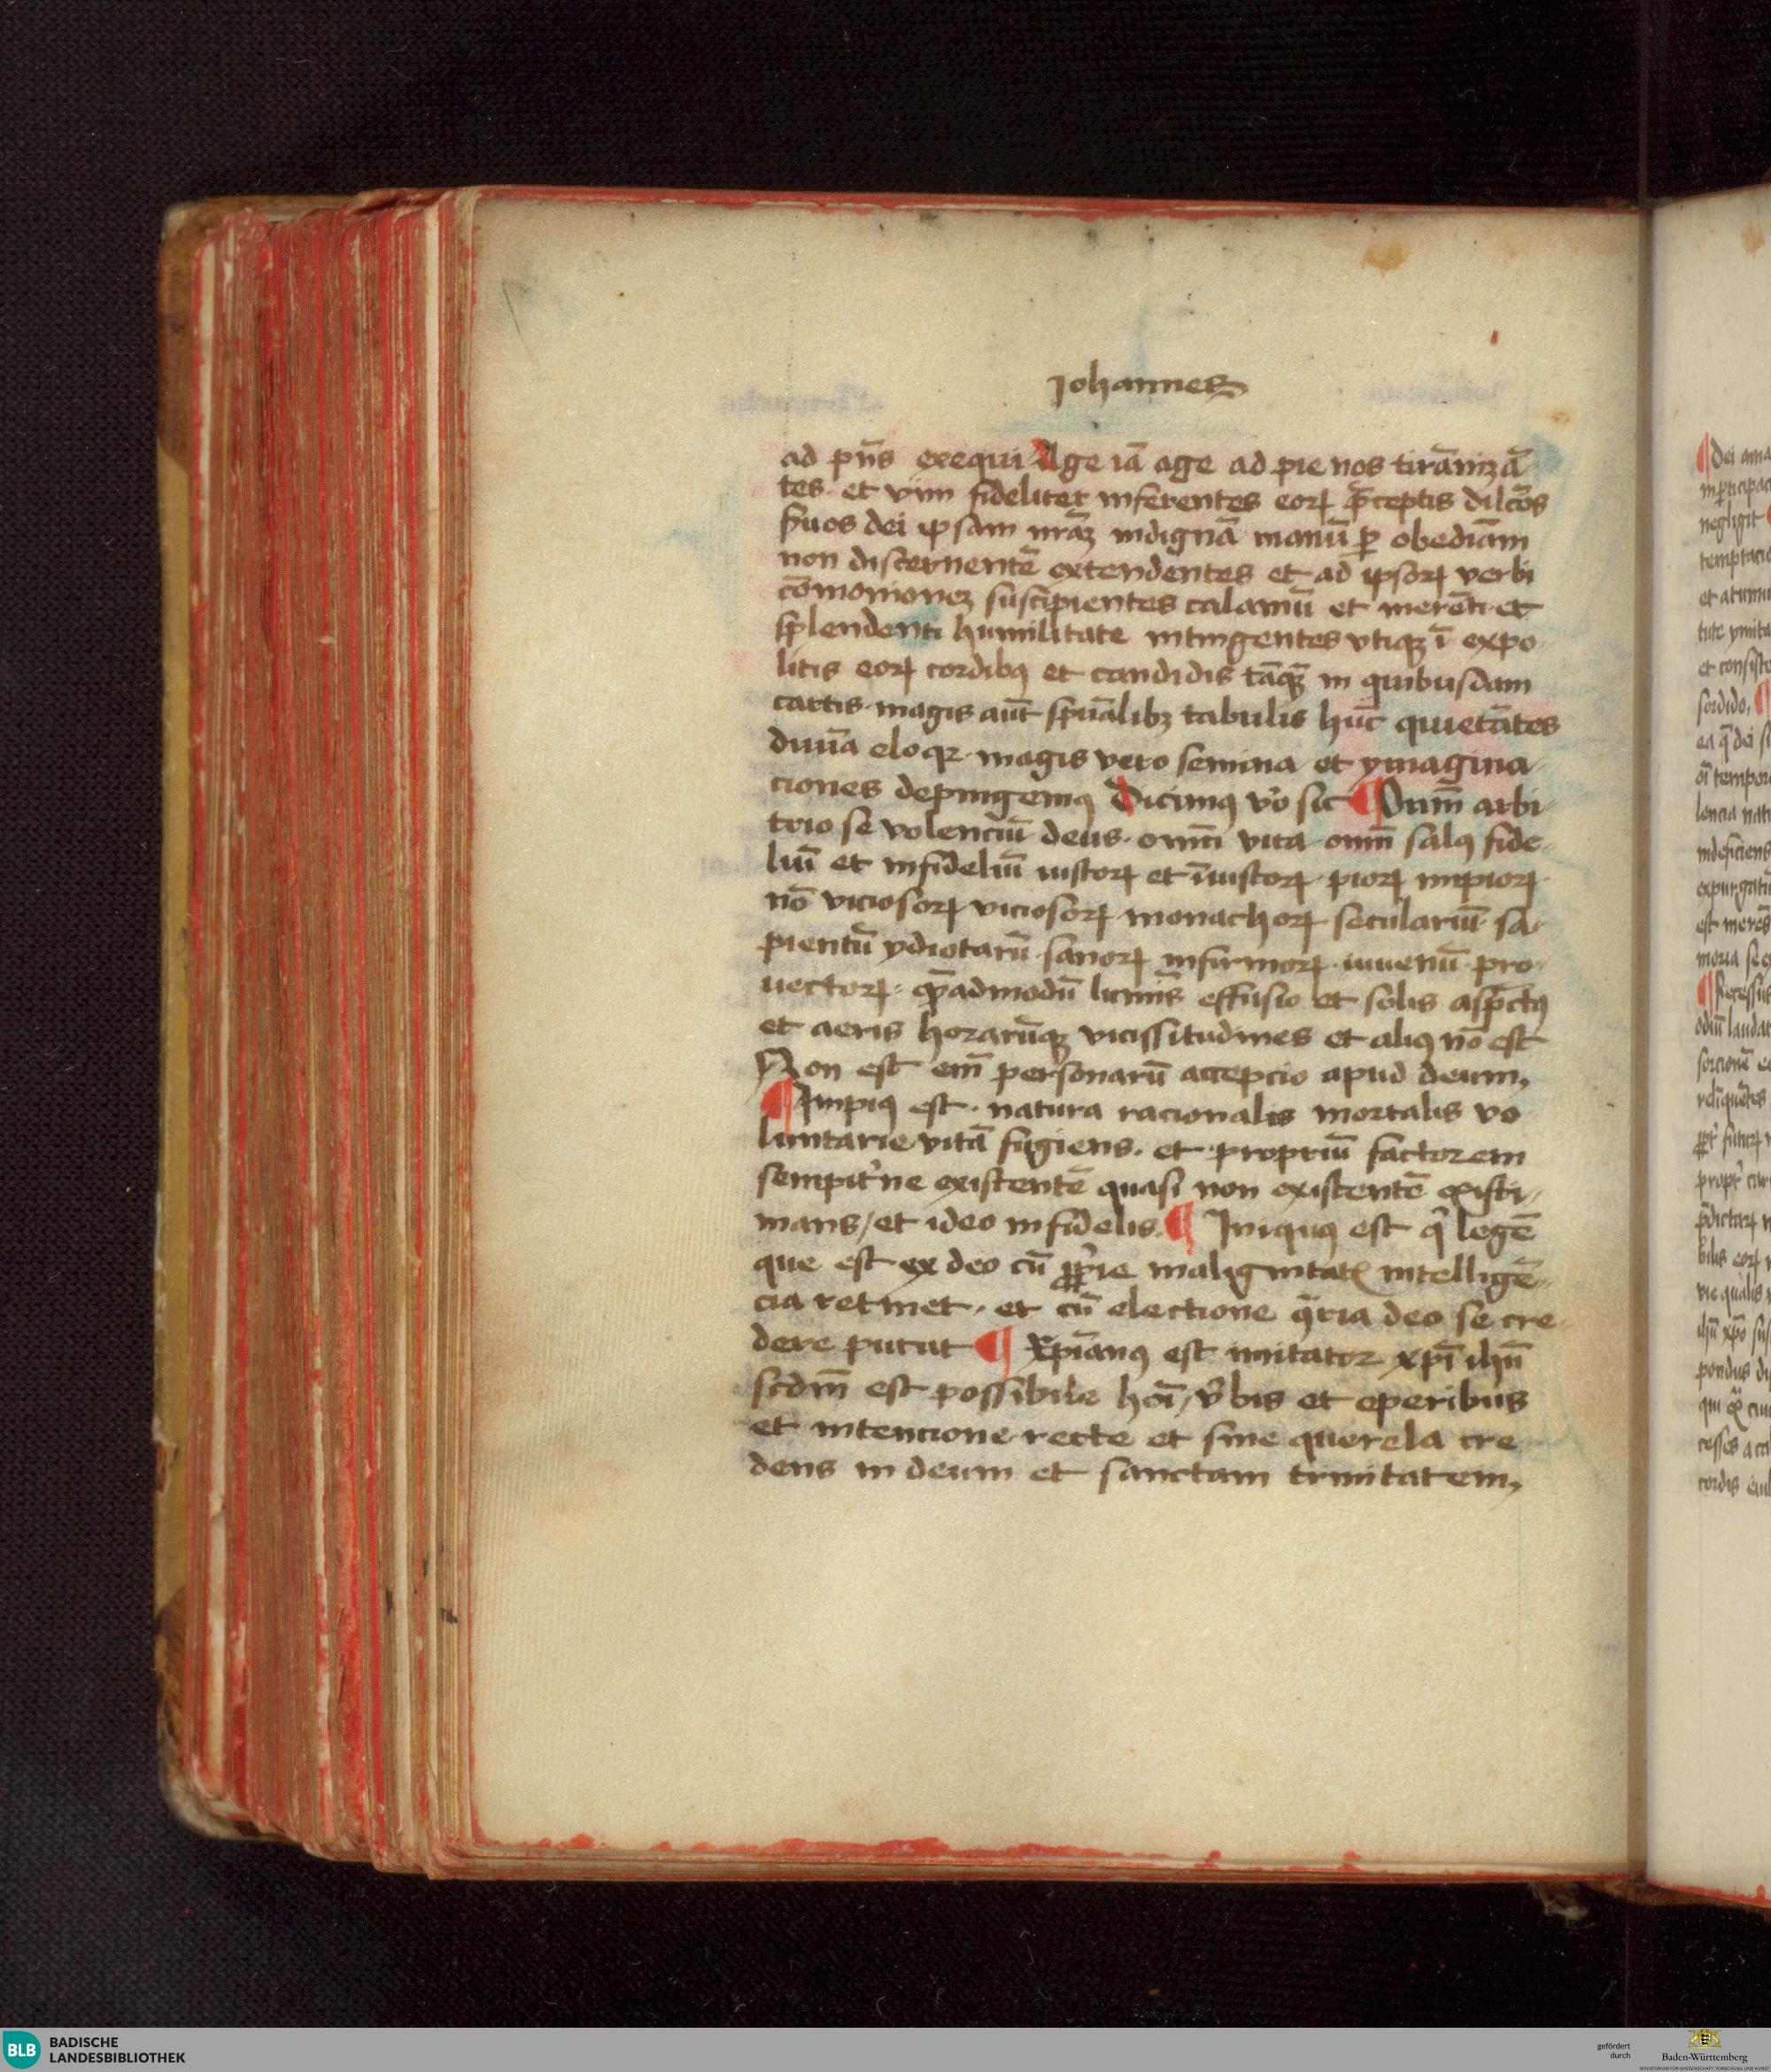 Johannes
ad pn̄s exequi Age iā age ad pie nos tirānizā
tes et vim fideliter inferentes eoꝝ p̄ceptis dilc̄os
s̄uos dei ip̄sam nr̄aꝫ indignā manū ꝑ obediām
non discernentē extendentes et ad ipsoꝝ verbi
cōmonioneꝫ suscīpientes calamū et merēti et
splendenti humilitate intingentes vtiqꝫ ī expo
litis eoꝝ cordibꝰ et candidis tāqꝫ in quibusdam
cartis magis aūt spūalibꝫ tabulis hūc quietātes
diuīa eloqꝛ magis vero semina et ymagina
ciones depingemꝰ Dicimꝰ v̓o sic ¶ Oīm arbi
trio se volenciū deus oīm vita oīm salꝰ fide
liū et infideliū iustoꝝ et īiustoꝝ pioꝝ impioꝝ
nō viciosoꝝ viciosoꝝ monachoꝝ seculariū sa
pientū ydiotarū sanoꝝ infirmoꝝ iuuenū pro
uectoꝝ q̄admodū lumīs effusio et solis asp̄ctꝰ
et aeris horarūqꝫ vicissitudines et aliꝰ nō est
Non est em̄ personarū accepcio apud deum,
¶ Impiꝰ est natura racionalis mortalis vo
luntarie vitā fugiens. et propriū factorem
sempit̓ne existentē quasi non existentē existi
mans / et ideo infidelis. ¶ Iniquꝰ est q̓ legē
que est ex deo cū ꝓp̓ie malignitatꝭ intelligē
cia retinet. et cū electione ꝯ̄ria deo se cre
dere putat ¶ Xp̄ianꝰ est imitator xp̄i ihū
scdm̄ est possibile hōi / v̓bis et operibus
et intencione recte et sine querela cre
dens in deum et sanctam trinitatem,
BLB BADISCHE
LANDESBIBLIOTHEK
gefördert
durch
Baden-Württemberg